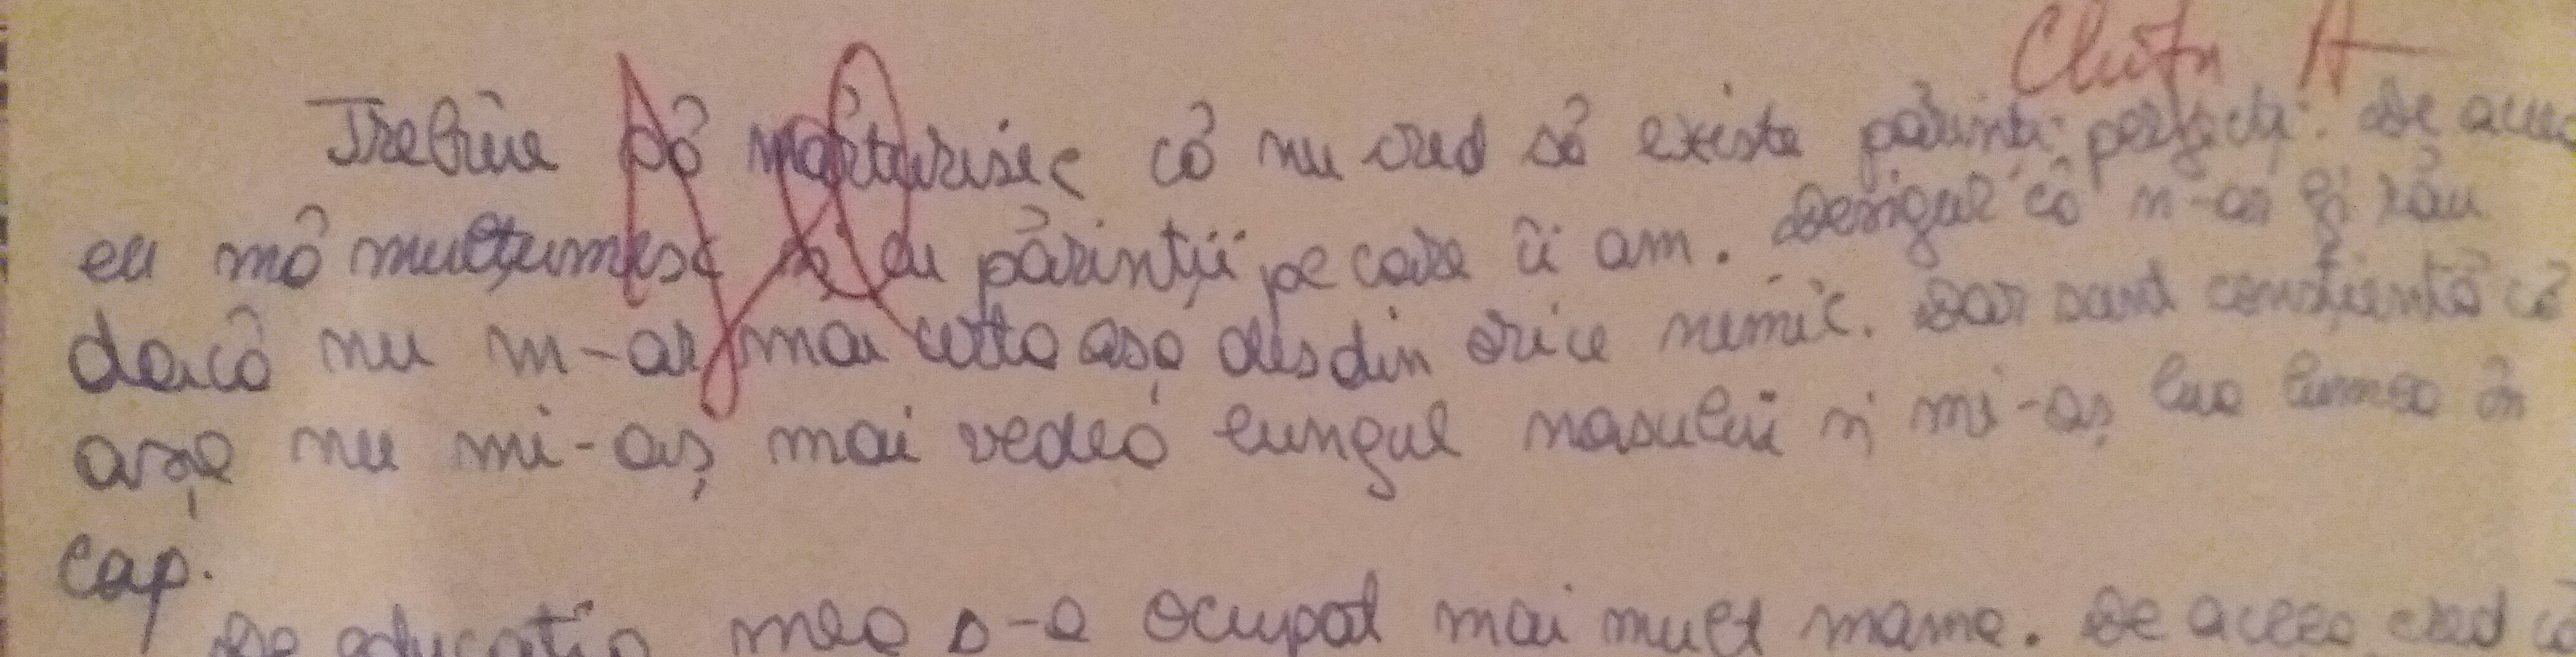 Trebuie să mărturisesc că nu cred să existe părinți perfecți. De aceea
eu mă mulțumesc și cu părinții pe care îi am. Desigur că n-ar fi rău
dacă nu m-ar mai certa așa des din orice nimic. Dar sunt conștientă că
așa nu mi-aș mai vedea lungul nasului și mi-aș lua lumea în
cap.
De educația mea s-a ocupat mai mult mama. De aceea cred că